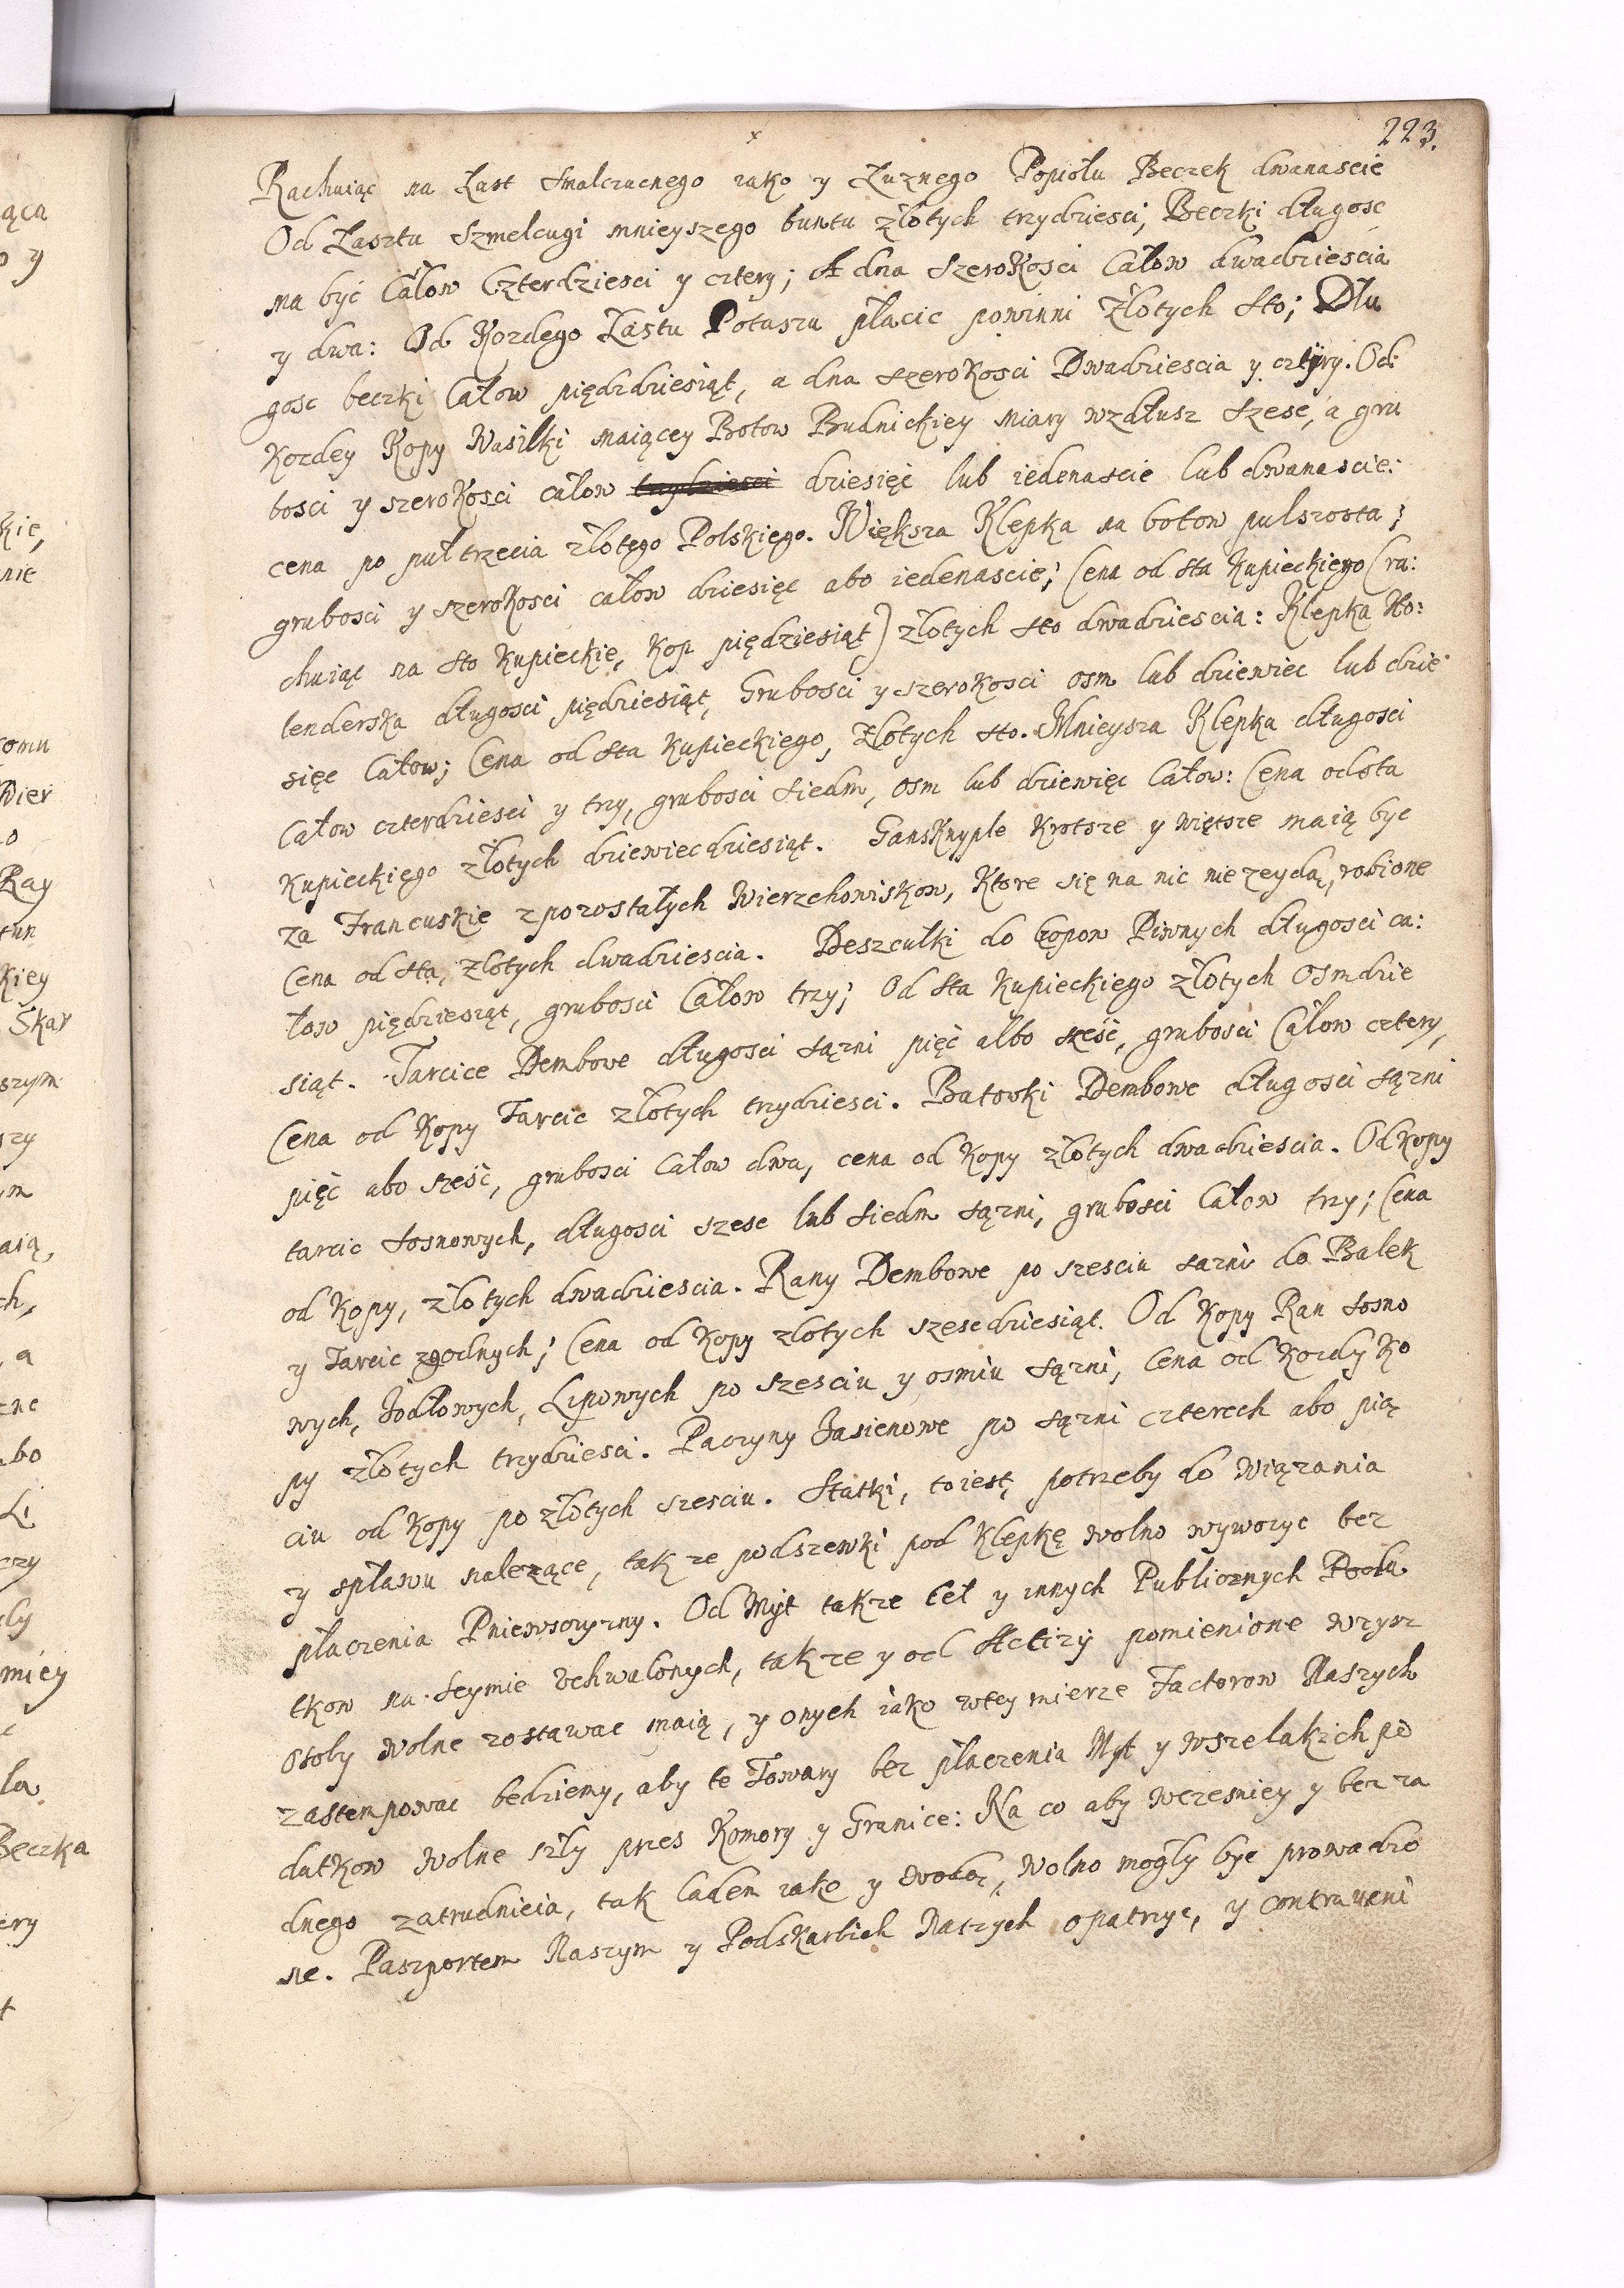 223.
Rachuiąc na Łast Smalczucnego iako y Łuznego Popiołu Beczek dwanascie
Od Łasztu Szmelcugi mnieyszego buntu złotych trzydziesci, Beczki długosc
ma być Całow Czterdziesci y cztery; A dna Szerokosci Całow dwadziescia
y dwa: Od Kozdego Łastu Potaszu płacic powinni Złotych Sto; Dłu
gosc beczki Całow pięćdziesiąt, a dna szerokosci Dwadziescia y cztyry. Od
Kozdey Kopy Wasilki maiącey Botow Budnickiey miary wzdłusz szesc, a gru
bosci y szerokosci całow trzydziesci dziesięć lub iedenascie lub dwanascie:
cena po puł trzecia złotego Polskiego. Większa Klepka na botow pulszosta;
grubosci y szerokosci całow dziesięc abo iedenascie; Cena od sta Kupieckiego (ra:
chuiąc na sto Kupieckie, Kop pięćdziesiąt) złotych sto dwadziescia: Klepka Ho:
lenderska długosci pięćdziesiąt, Grubosci y szerokosci osm lub dziewiec lub dzie
sięc Całow; Cena od sta Kupieckiego, Złotych sto. Mnieysza Klepka długosci
Całow czterdziesci y trzy, grubosci siedm, osm lub dziewięc Całow: Cena od sta
Kupieckiego złotych dziewiecdziesiąt. GansKnyple Krotsze y więtsze maią byc
za Francuskie z pozostałych Wierzchowiskow, Ktore się na nic nie zeydą, robione
Cena od sta, złotych dwadziescia. Deszculki do Czopow Piwnych długosci ca:
łow pięćdziesiąt, grubosci Całow trzy; Od sta Kupieckiego złotych Osmdzie
siąt. Tarcice Dembowe długosci sązni pięć albo szesć, grubosci Całow cztery,
Cena od Kopy Tarcic złotych trzydziesci. Batowki Dembowe długosci sązni
pięć abo szesć, grubosci Całow dwa, cena od Kopy złotych dwadziescia. Od Kopy
tarcic sosnowych, długosci szesc lub siedm sązni, grubosci Całow trzy; Cena
od Kopy, złotych dwadziescia. Rany Dembowe po szesciu sazni do Balek
y Tarcic zgodnych; Cena od Kopy złotych szescdziesiąt. Od Kopy Ran sosno
wych, Jodłowych, Lipowych po szesciu y osmiu sązni, Cena od Kozdy Ko
py złotych trzydziesci. Paczyny Jasienowe po sązni czterech abo pią
ciu od Kopy po złotych szesciu. Statki, to iest, potrzeby do wiązania
y spławu nalezące, tak ze podszewki pod Klepkę wolno wywozyc bez
płaczenia Pniewsczyzny. Od Myt takze Ceł y innych Publicznych Poda
tkow na Seymie Vchwalonych, tak ze y od Actizy pomienione wzysz
Osoby wolne zostawac maią, y onych iako wtey mierze Factorow Naszych
zastempowac bedziemy, aby te Towary bez płaczenia Myt y wszelakich po
datkow wolne szły przes Komory y Granice: Na co aby wczesniey y bez za
dnego zatrudnicia, tak ladem iako y wodą, wolno mogły byc prowadzo
ne. Paszportem Naszym y Podskarbich Naszych opatrzyc, y contraueni